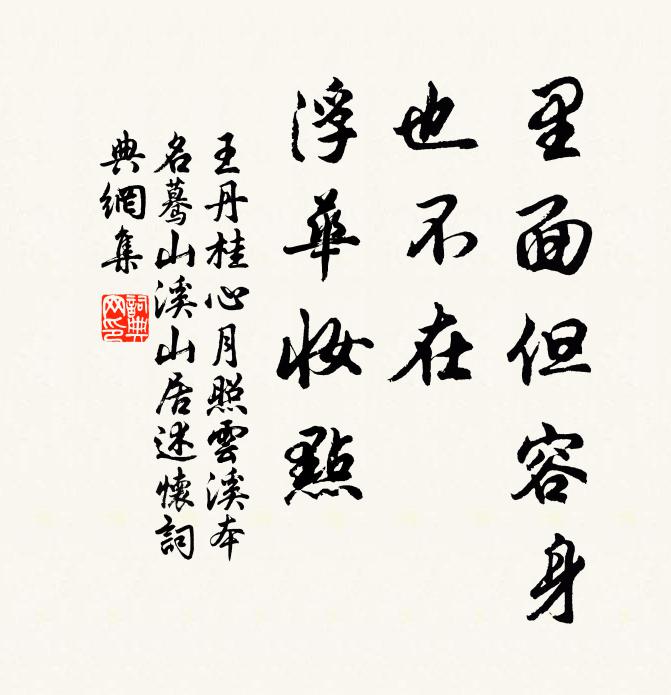 里面但容身
也不在
浮華妝點
王丹桂心月照雲溪本
名驀山溪山居述懷詞
典網集
詞典
网印